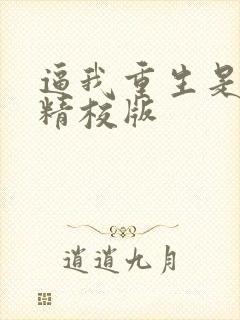 逼我重生是
精校版
逍逍九月